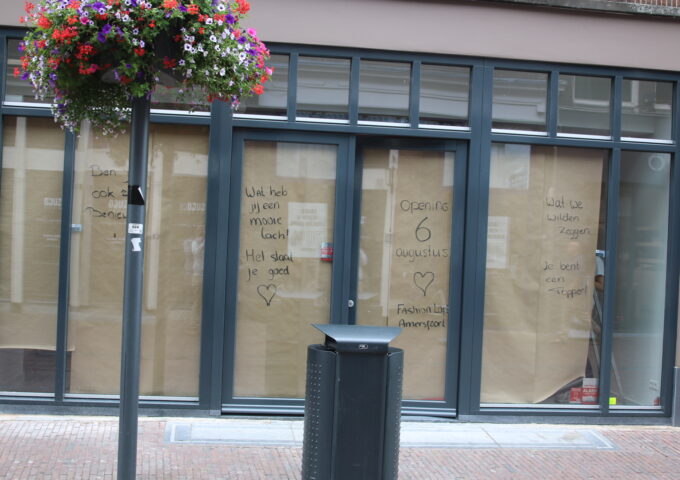 Ben
ook
Benieuwd
Wat heb
jij een
mooie
lach!
Het staat
je goed
Opening
6
augustus
Fashion Loft
Amersfoort
Wat we
wilden
zeggen
Je bent
een
topper!